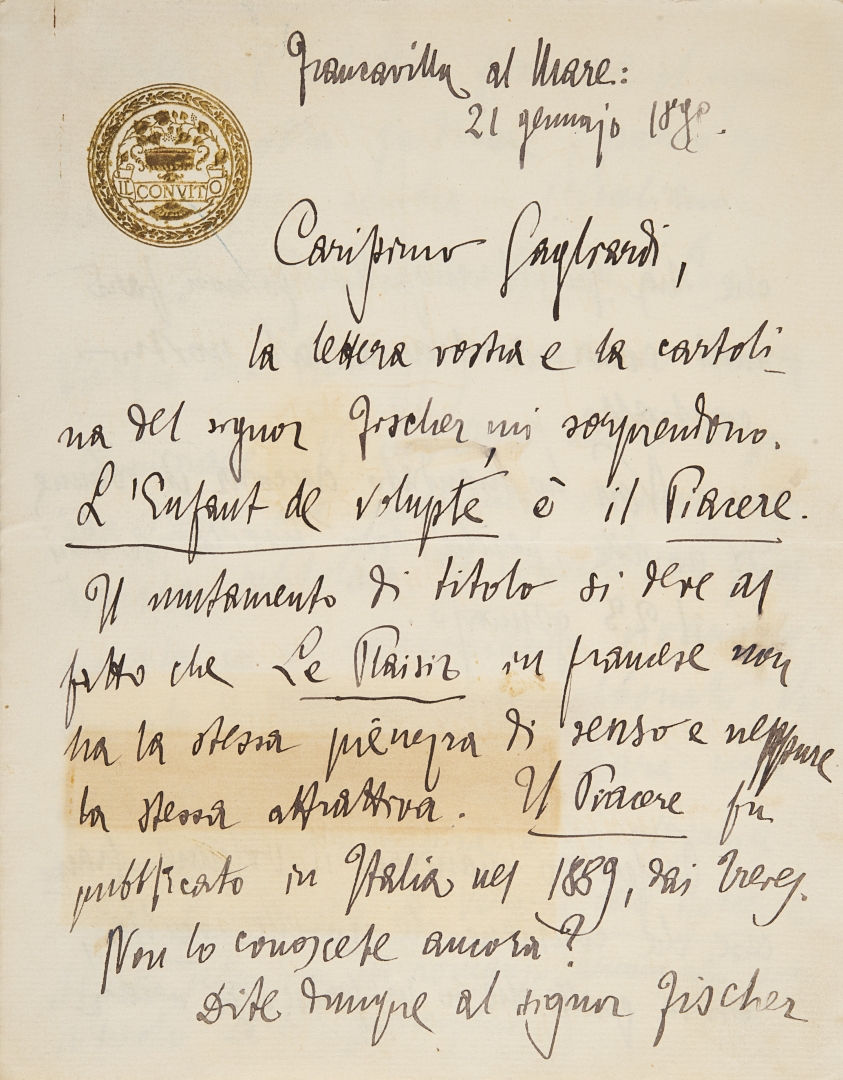 Francavilla al Mare:
21 gennajo 189
IL CONVITO
Carissimo Gagliardi,
la lettera vostra e la cartoli-
na del signor Fischer mi sorprendono.
L'Enfant de volupté è il Piacere.
Il mutamento di titolo si deve al
fatto che Le Plaisir in francese non
ha la stessa pienezza di senso e neppure
la stessa attrattiva. Il Piacere fu
pubblicato in Italia nel 1889, dai Treves.
Non lo conoscete ancora?
Dite dunque al signor Fischer